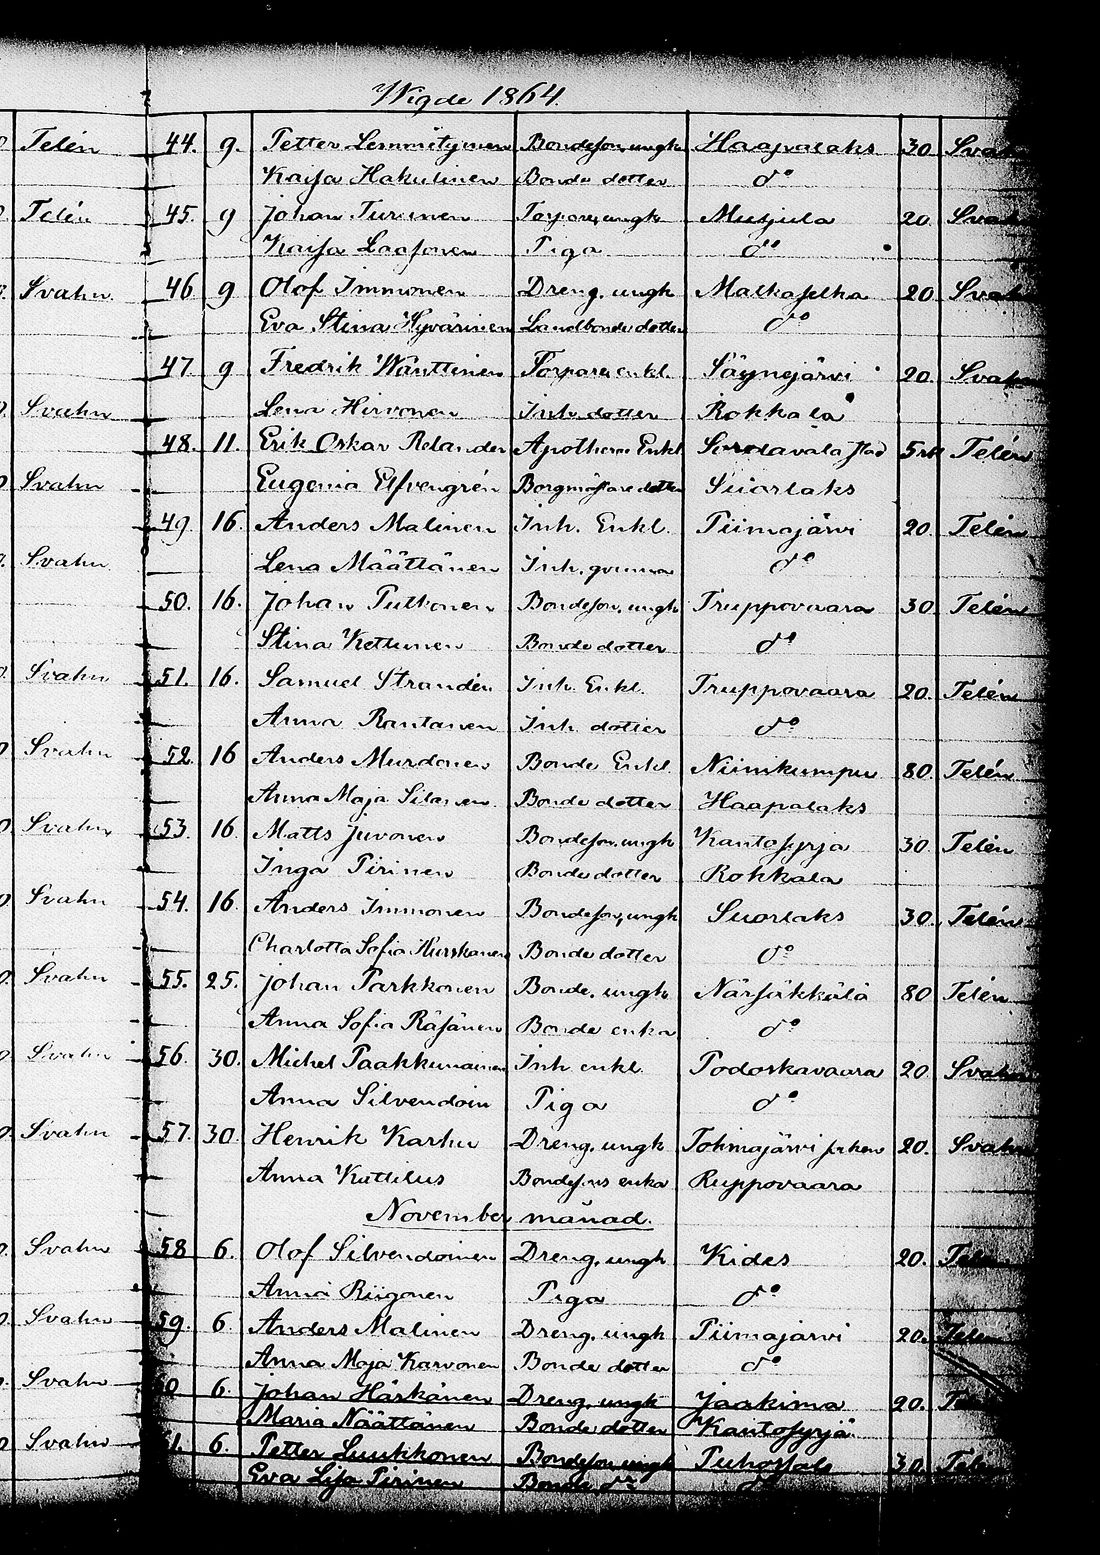 Wigde 1864.
Telén 44. 9. Petter Lemmitynen Bondeson, ungk Haapalaks 30. Svahn
Kaisa Hakulinen Bonde dotter do
Telén 45. 9 Johan Turunen Torpare, ungk Musjula 20. Svahn
Kaisa Laasonen Piga do
Svahn 46 9 Olof Immonen Dreng, ungk Matkaselka 20 Svahn
Eva Stina Hyvärinen Landbonde dotter do
47. 9 Fredrik Wänttinen Torpare enkl. Säynejärvi 20. Svahn
Svahn Lena Hirvonen Inh. dotter Rokkala
48. 11. Erik Oskar Relander Apothecare Enkl. Sordavala stad 5 Telén
Svahn Eugenia Elfvengrén Borgmästare dotter Suorlaks
49. 16. Anders Malinen Inh. Enkl. Piimajärvi 20. Telén
Svahn Lena Määttänen Inh. qvinna do
50. 16. Johan Putkonen Bondeson, ungk Truppovaara 30. Telén
Stina Kettunen Bonde dotter do
Svahn 51. 16. Samuel Strandén Inh. Enkl. Truppovaara 20. Telén
Anna Rantanen Inh. dotter do
Svahn 52. 16 Anders Murdonen Bonde Enkl. Niinikumpu 80. Telén
Anna Maja Silanen Bonde dotter Haapalaks
Svahn 53. 16. Matts Juvonen Bondeson, ungk Kantosyrja 30. Telén
Inga Pirinen Bonde dotter Rokkala
Svahn 54. 16. Anders Immonen Bondeson, ungk Suorlaks 30. Telén
Charlotta Sofia Hurskanen Bonde dotter do
Svahn 55. 25. Johan Parkkonen Bonde, ungk Närsäkkälä 80 Telén
Anna Sofia Räsänen Bonde enka do
Svahn 56. 30. Michel Paakkunainen Inh enkl. Podoskavaara 20. Svahn
Anna Silvendoin Piga do
Svahn 57. 30. Henrik Karhu Dreng, ungk Tohmajärvi sokn 20. Svahn
Anna Kattilus Bondesons enka Ruppovaara
November månad.
Svahn 58 6. Olof Silvendoinen Dreng, ungk Kides 20. Telén
Anna Riigonen Piga do
Svahn 59. 6. Anders Malinen Dreng, ungk Piimajärvi 20. Telén
Anna Maja Karvonen Bonde dotter do
Svahn 6. Johan Härkänen Dreng, ungk Jaakima 20. Telén
Maria Näättänen Bonde dotter Kantosyrjä
Svahn 6. Petter Luukkonen Bondeson ungk Puhossals 30. Telén
Eva Lisa Pirinen Bonde do do